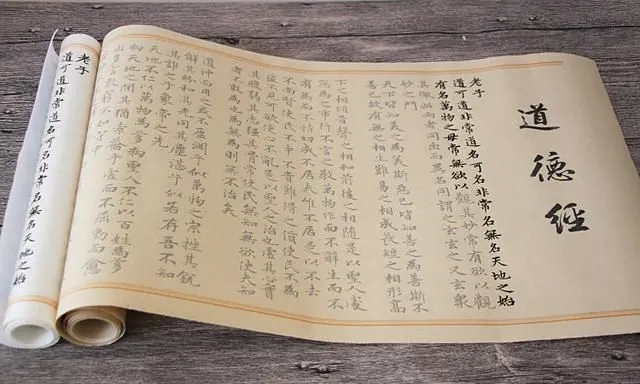 道德經
老子
道可道非常道名可名非常名無名天地之始
有名萬物之母常無欲以觀其妙常有欲以觀
其徼此兩者同出而異名同謂之玄玄之又玄衆
妙之門
天下皆知美之為美斯惡已皆知善之為善斯不
善已故有無之相生難易之相成長短之相形高
下之相傾音聲之相和前後之相隨是以聖人處
無為之事行不言之教萬物作而不辭生而不
有為而不恃功成不居夫惟不居是以不去
不尚賢使民不爭不貴難得之貨使民不為
盜不見可欲使心不亂是以聖人之治也虛其心實
其腹弱其志強其骨常使民無知無欲使夫知
者不敢為也為無為則無不治矣
道沖而用之或不盈淵乎似萬物之宗挫其銳
解其紛和其光同其塵湛兮似若存吾不知
其誰之子象帝之先
天地不仁以萬物為芻狗聖人不仁以百姓為芻
狗天地之間其猶橐籥乎虛而不屈動而愈
出多言數窮不如守中
老子
道可道非常道名可名非常名無名天地之始